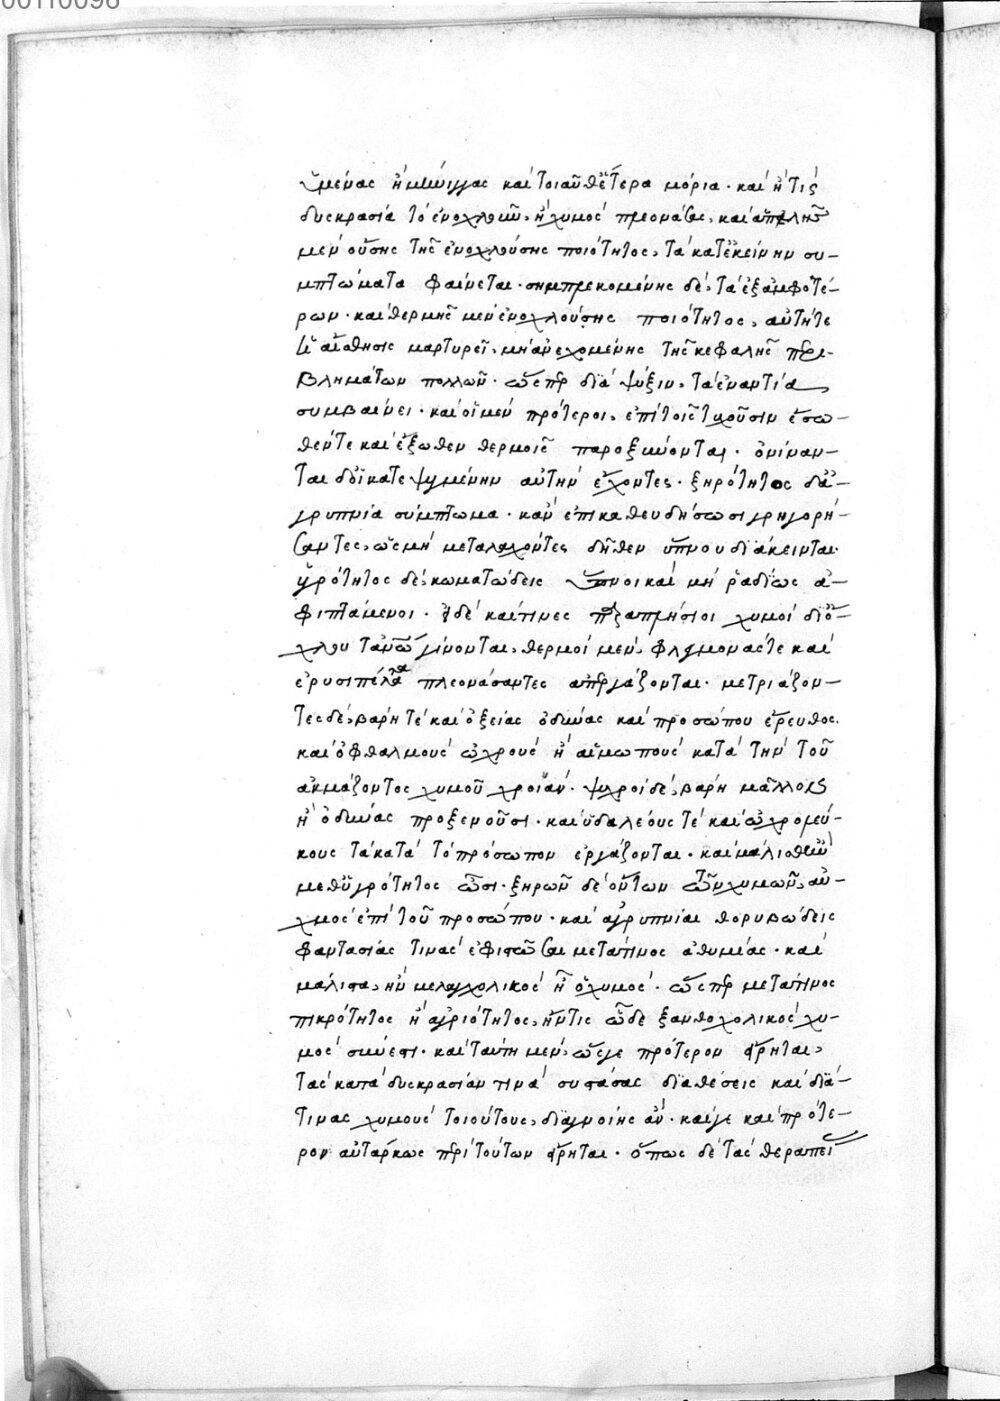 00110098
ὑμένας ἢ μήνιγγας καὶ τοιαῦθ' ἕτερα μόρια · καὶ ἤ τις
δυσκρασία τὸ ἐνοχλοῦν, ἢ χυμὸς πλεονάσας, καὶ ἁπλῆς
μὲν οὔσης τῆς ἐνοχλούσης ποιότητος, τὰ κατ' ἐκείνην συ-
μπτώματα φαίνεται · συμπλεκομένης δὲ, τὰ ἐξ ἀμφοτέ-
ρων · καὶ θερμῆς μὲν ἐνοχλούσης ποιότητος, αὐτή τε
ἡ αἴσθησις μαρτυρεῖ, μὴ ἀνεχομένης τῆς κεφαλῆς περι-
βλημάτων πολλῶν · ὥσπερ διὰ ψύξιν, τὰ ἐναντία
συμβαίνει · καὶ οἱ μὲν πρότεροι, ἐπὶ τοῖς τυχοῦσιν ἔσω-
θέν τε καὶ ἔξωθεν θερμοῖς παροξύνονται · ὀνίναν-
ται δὲ οἱ κατεψυγμένην αὐτὴν ἔχοντες · ξηρότητος δὲ ἀ-
γρυπνία σύμπτωμα · κἂν ἐπικαθευδήσωσι γρηγορή-
σαντες, ὡς μὴ μεταλαχόντες δῆθεν ὕπνου διάκεινται ·
ὑγρότητος δὲ, κωματώδεις ὕπνοι καὶ μὴ ῥαδίως ἀ-
φιπτάμενοι · οἱ δὲ καί τινες χυμοὶ δι' ὄ-
χλου γίνονται, θερμοὶ μὲν, φλεγμονάς τε καὶ
ἐρυσιπέλατα πλεονάσαντες ἀπεργάζονται · μετριάζον-
τες δὲ, βάρη τὲ καὶ ὀξείας ὀδύνας καὶ προσώπου ἔρευθος,
καὶ ὀφθαλμοὺς ὠχροὺς ἢ αἱμωποὺς κατὰ τὴν τοῦ
ἀκμάζοντος χυμοῦ χροιάν · ψυχροὶ δὲ, βάρη μᾶλλον
ἢ ὀδύνας προξενοῦσι · καὶ ὑδαλέους τὲ καὶ ὠχρολεύ-
κους τὰ κατὰ τὸ πρόσωπον ἐργάζονται · καὶ μάλισθ' ὅταν
μεθ' ὑγρότητος ὦσι · ξηρῶν δὲ ὄντων τῶν χυμῶν, αὐ-
χμὸς ἐπὶ τοῦ προσώπου · καὶ ἀγρυπνίαι θορυβώδεις
φαντασίας τινὰς ἐφιστῶσαι μετά τινος ἀθυμίας · καὶ
μάλιστα, ἢν μελαγχολικὸς ᾖ ὁ χυμός · ὥσπερ μετά τινος
πικρότητος ἢ ἀγριότητος, ἤν τις ὧδε ξανθοχολικὸς χυ-
μὸς σύνεστι · καὶ ταύτῃ μὲν, ὥς γε πρότερον εἴρηται,
τὰς κατὰ δυσκρασίαν τινὰ συστάσας διαθέσεις καὶ διά
τινας χυμοὺς τοιούτους, διαγνοίης ἄν · καί γε καὶ πρότε-
ρον αὐτάρκως περὶ τούτων εἴρηται · ὅπως δὲ τὰς θεραπεί